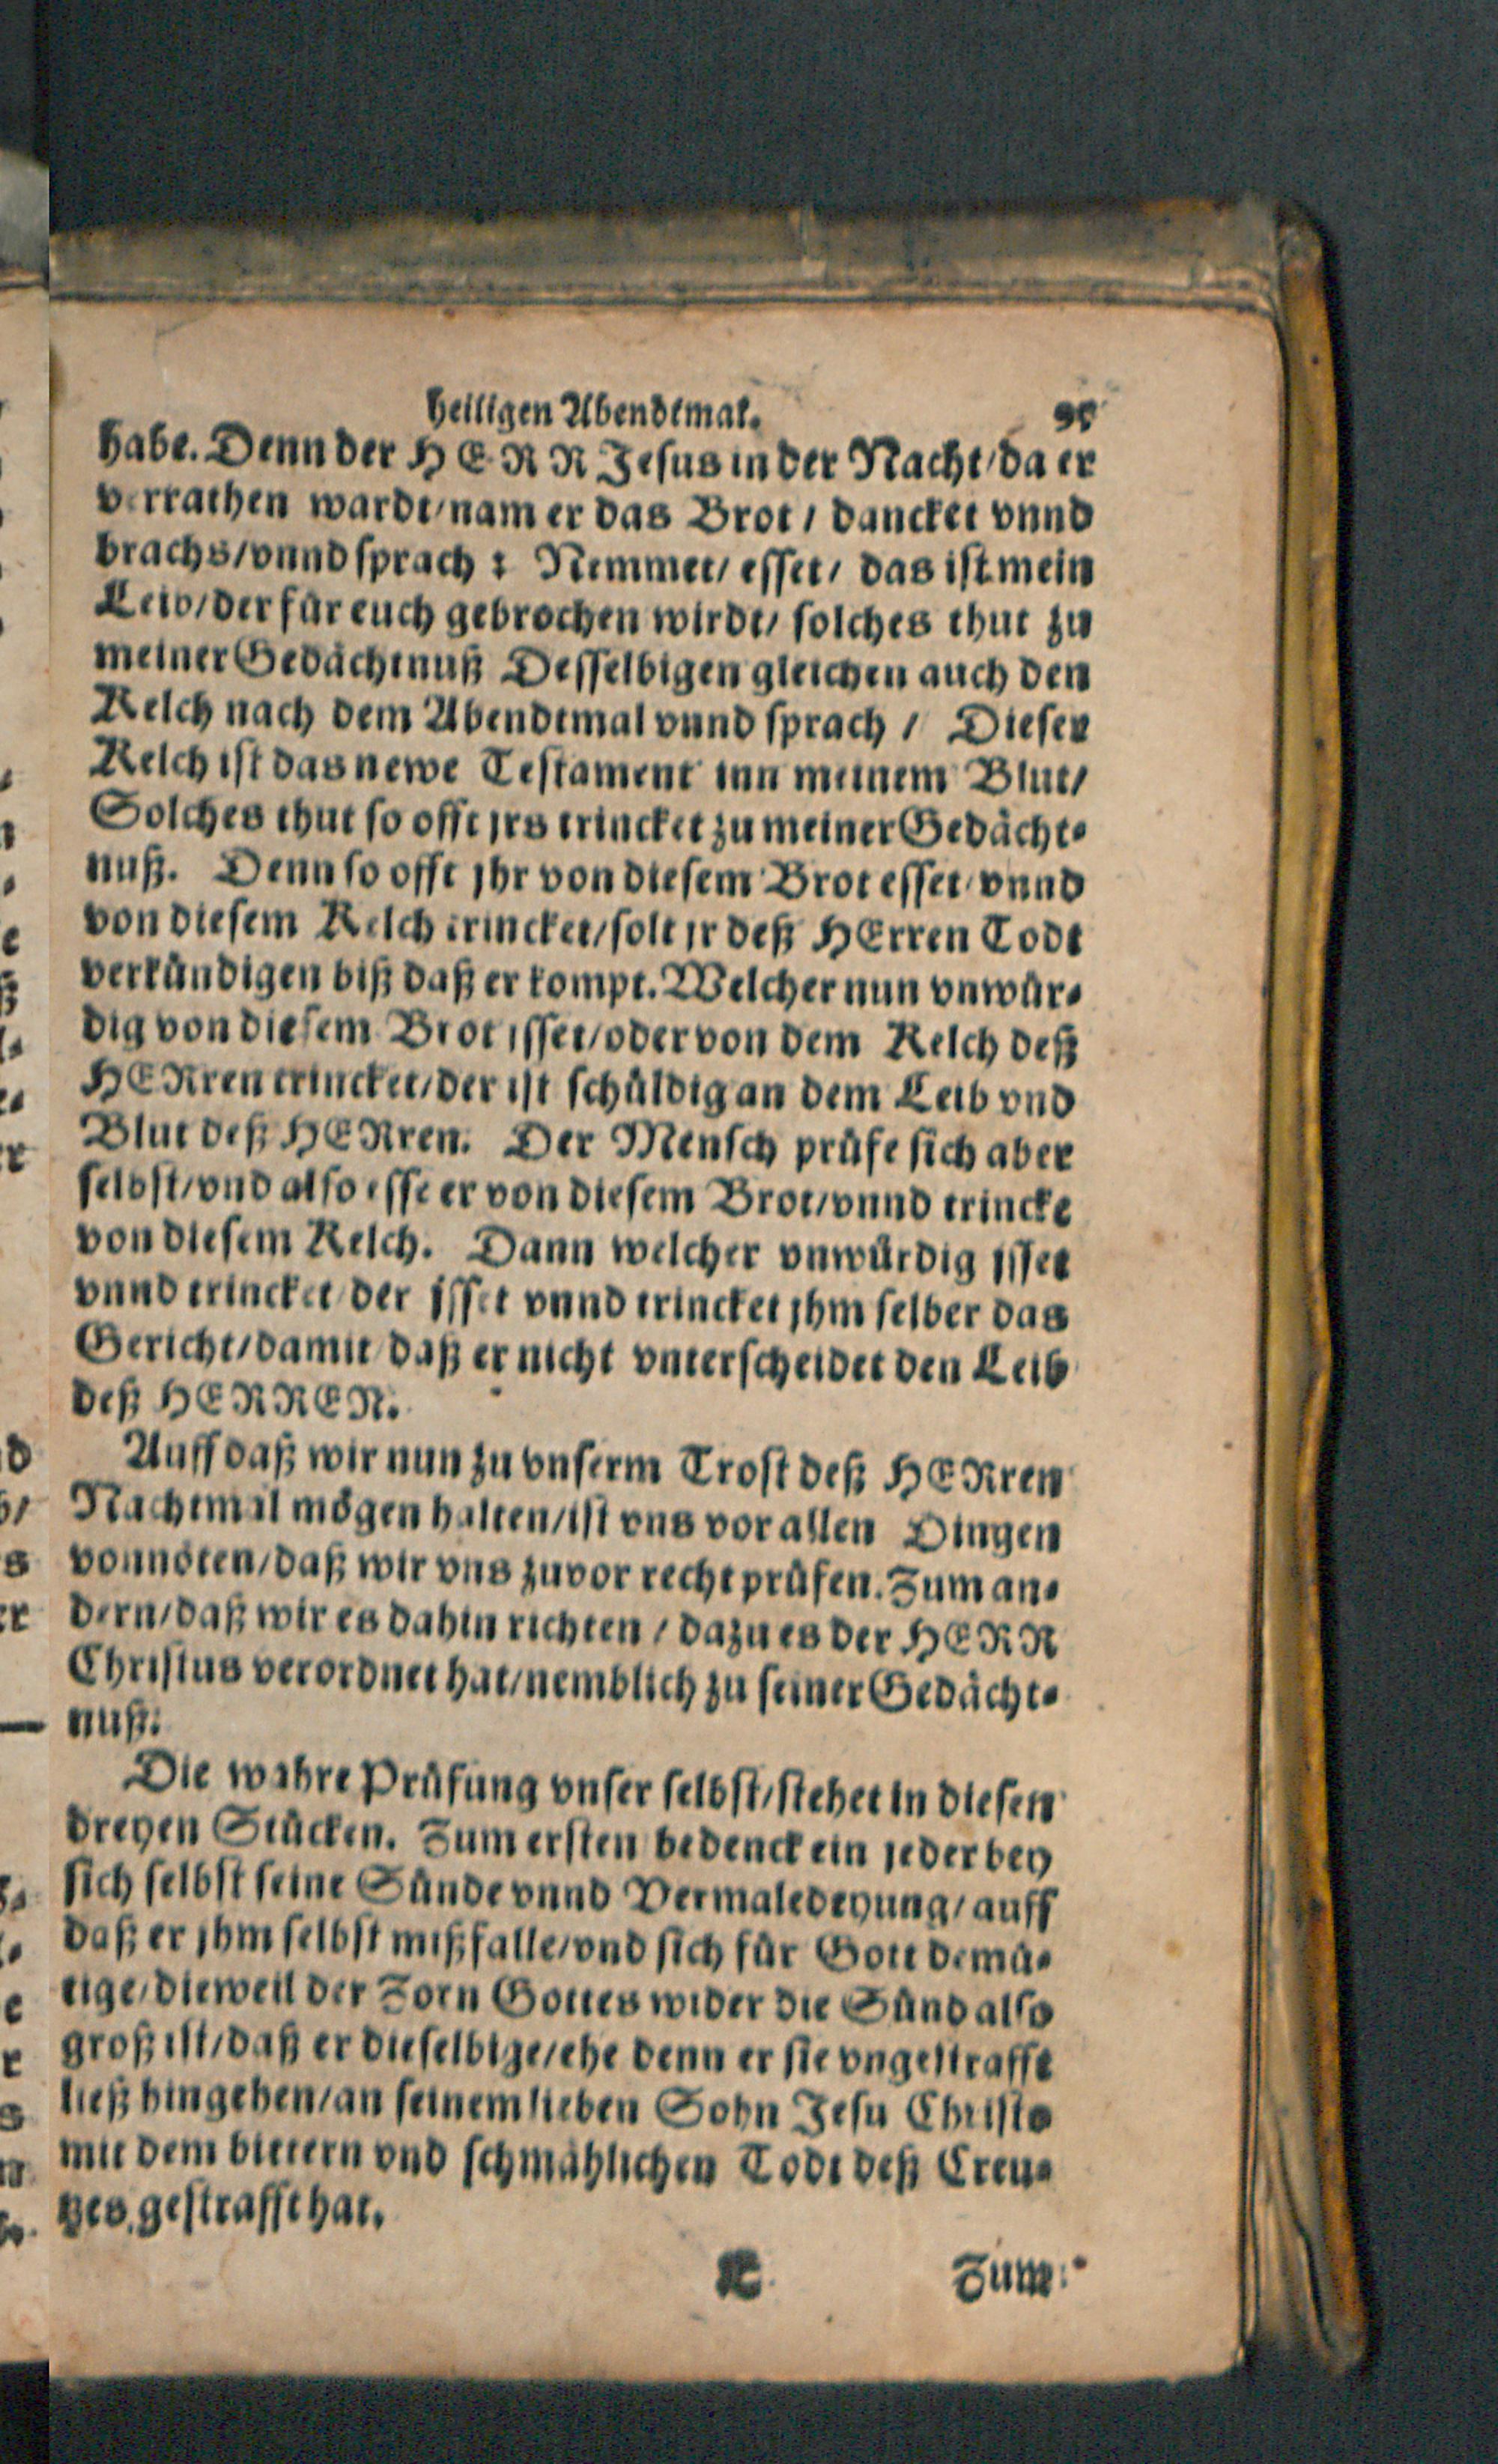 heiligen Abendtmal. 95
habe. Denn der HERR Jesus in der Nacht/da er
verrathen wardt/nam er das Brot / dancket vnnd
brachs/vnnd sprach : Nemmet/ esset/ das ist mein
Leib/der für euch gebrochen wirdt/ solches thut zu
meiner Gedächtnuß Desselbigen gleichen auch den
Kelch nach dem Abendtmal vnnd sprach / Dieser
Kelch ist das newe Testament inn meinem Blut/
Solches thut so offt jrs trincket zu meiner Gedächt-
nuß. Denn so offt jhr von diesem Brot esset/vnnd
von diesem Kelch trincket/solt jr deß HErren Todt
verkündigen biß daß er kompt. Welcher nun vnwür-
dig von diesem Brot isset/oder von dem Kelch deß
HERren trincket/der ist schüldig an dem Leib vnd
Blut deß HERren. Der Mensch prüfe sich aber
selbst/vnd also esse er von diesem Brot/vnnd trincke
von diesem Kelch. Dann welcher vnwürdig jsset
vnnd trincket/der jsset vnnd trincket jhm selber das
Gericht/damit daß er nicht vnterscheidet den Leib
deß HERREN.
Auff daß wir nun zu vnserm Trost deß HERren
Nachtmal mögen halten/ist vns vor allen Dingen
vonnöten/daß wir vns zuvor recht prüfen. Zum an-
dern/daß wir es dahin richten / dazu es der HERR
Christus verordnet hat/nemblich zu seiner Gedächt-
nuß.
Die wahre Prüfung vnser selbst/stehet in diesen
dreyen Stücken. Zum ersten bedenck ein jeder bey
sich selbst seine Sünde vnnd Vermaledeyung/auff
daß er jhm selbst mißfalle/vnd sich für Gott demü-
tige/dieweil der Zorn Gottes wider die Sünd also
groß ist/daß er dieselbige/ehe denn er sie vngestrafft
ließ hingehen/an seinem lieben Sohn Jesu Christo
mit dem bittern vnd schmählichen Todt deß Creu-
tzes gestrafft hat.
Zum